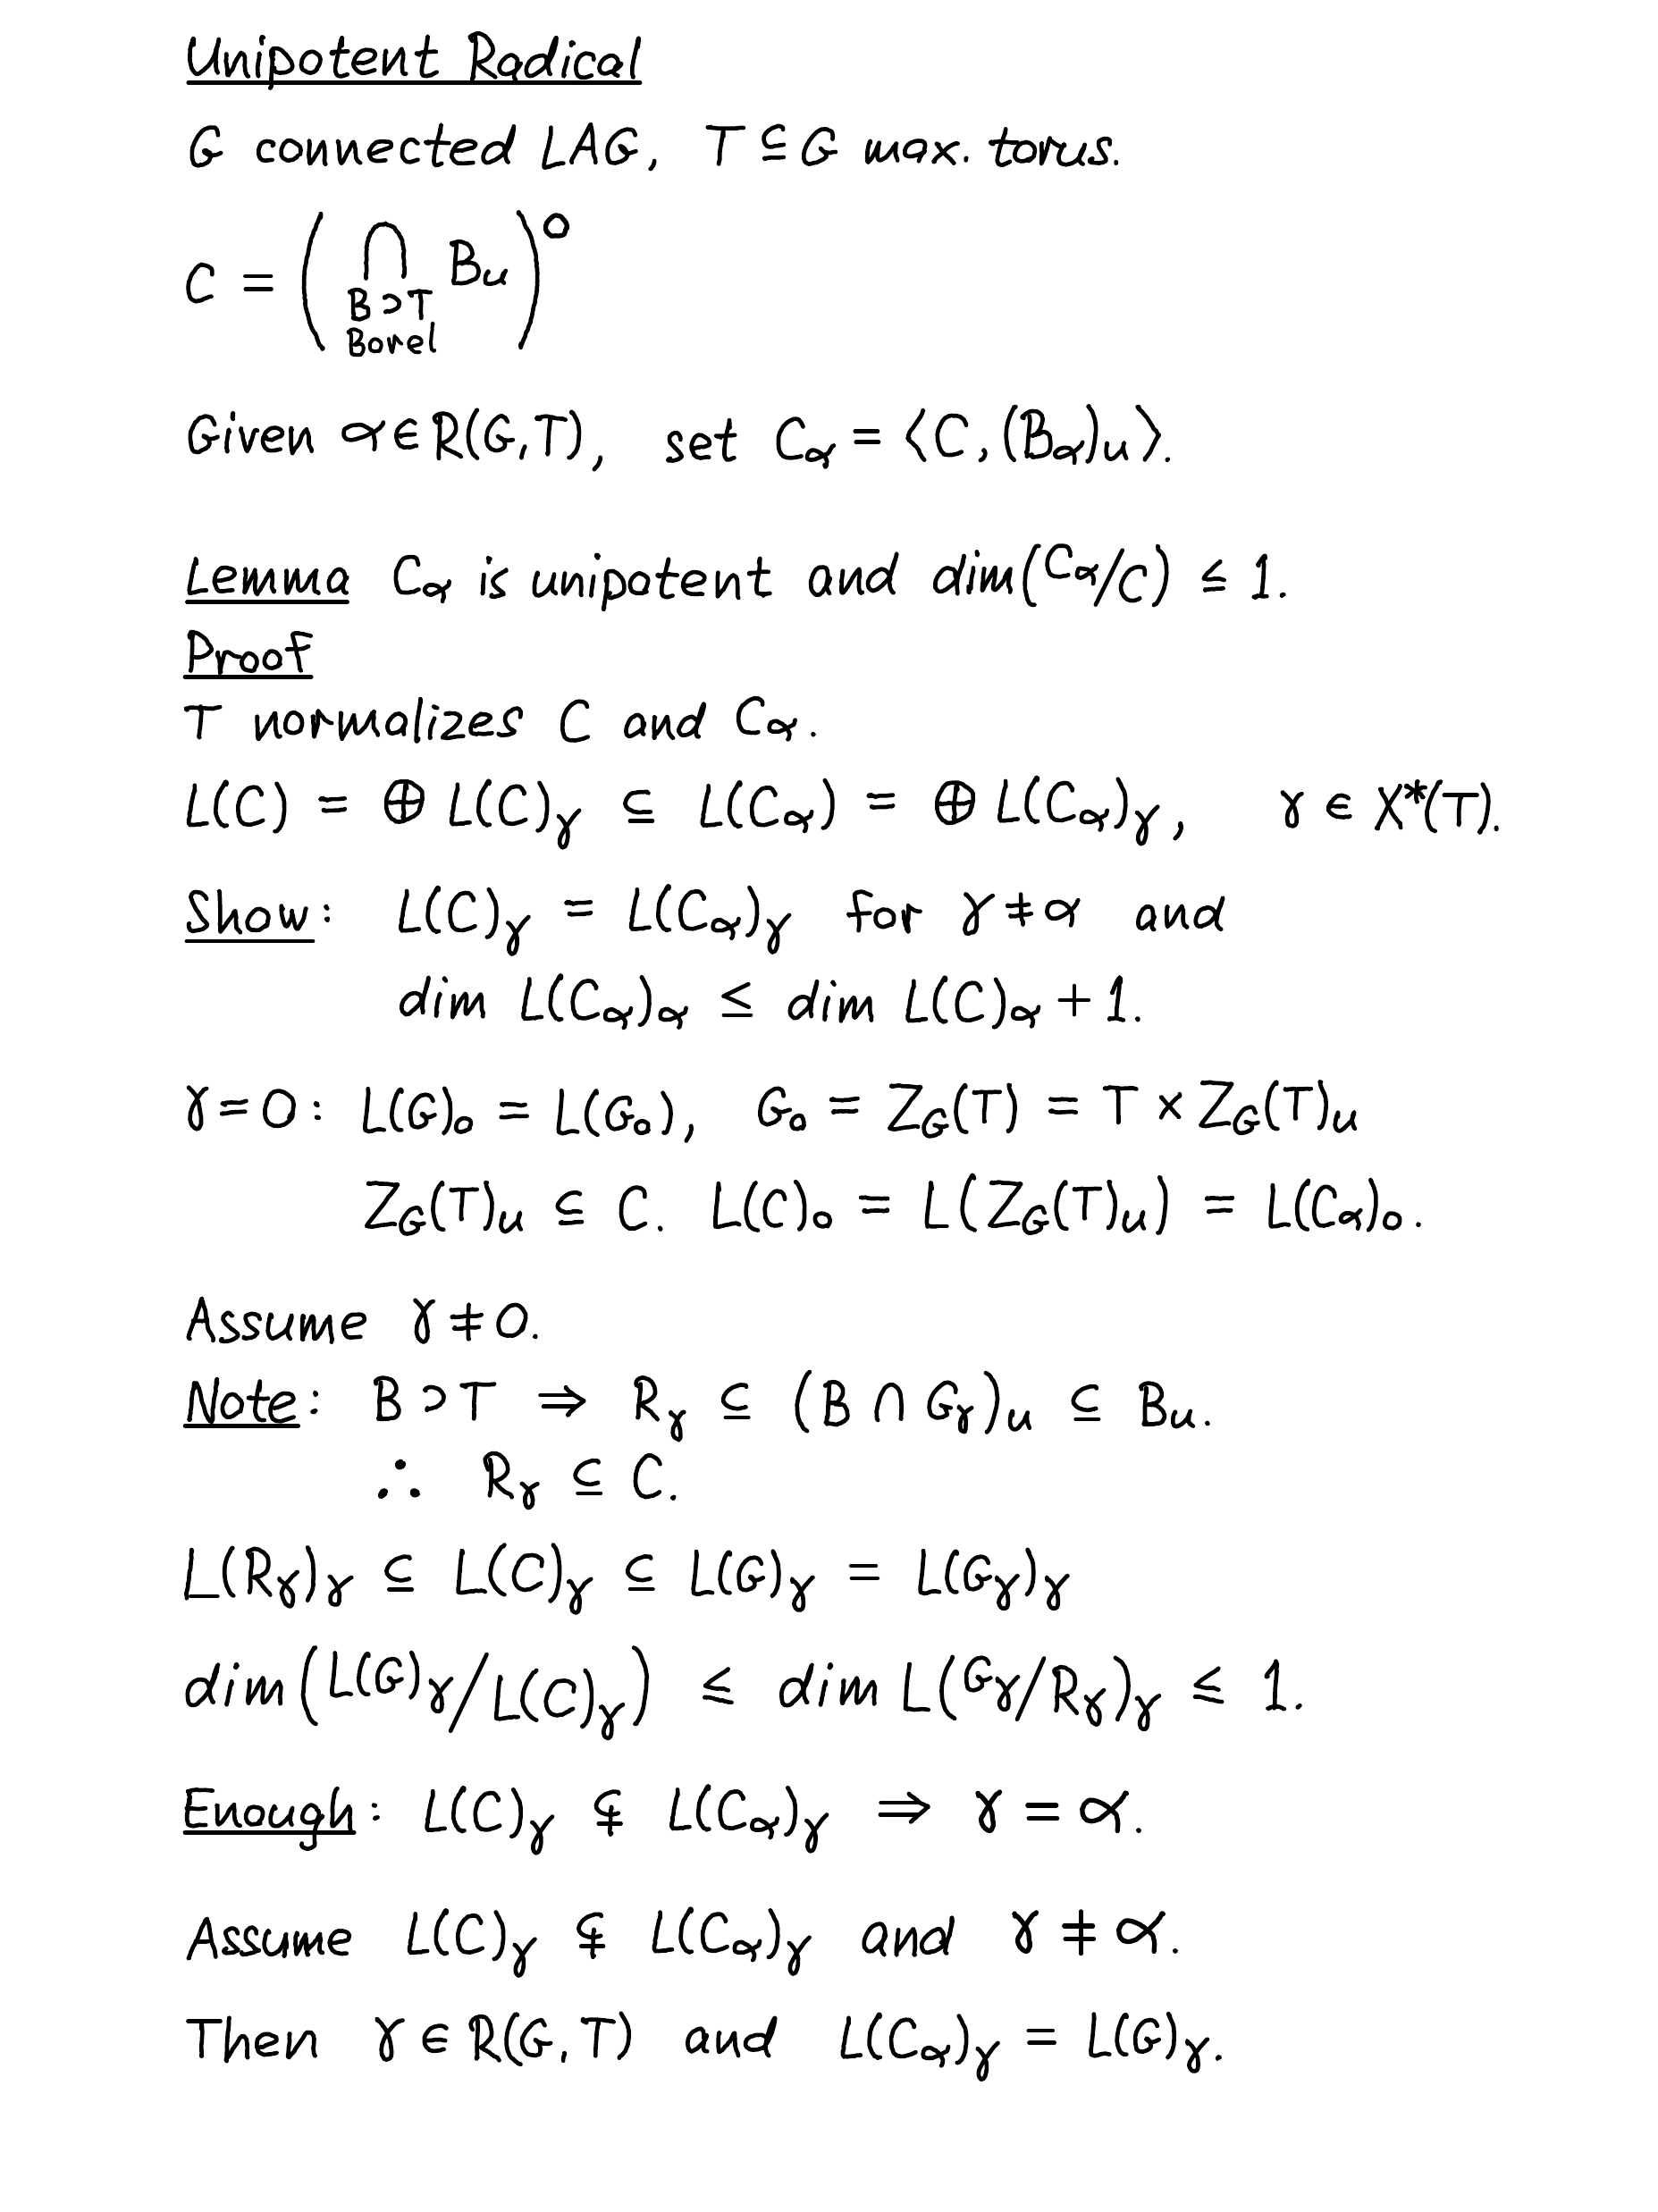 Unipotent Radical
G connected LAG, T ⊆ G max. torus.
C = ( ⋂_{B⊃T Borel} B_u )°
Given α∈R(G,T), set C_α = ⟨C, (B_α)_u⟩.
Lemma C_α is unipotent and dim(C_α/C) ≤ 1.
Proof
T normalizes C and C_α.
L(C) = ⊕ L(C)_γ ⊆ L(C_α) = ⊕ L(C_α)_γ, γ ∈ X*(T).
Show: L(C)_γ = L(C_α)_γ for γ≠α and
dim L(C_α)_α ≤ dim L(C)_α + 1.
γ=0: L(G)_0 = L(G_0), G_0 = Z_G(T) = T × Z_G(T)_u
Z_G(T)_u ⊆ C. L(C)_0 = L(Z_G(T)_u) = L(C_α)_0.
Assume γ≠0.
Note: B⊃T ⇒ R_γ ⊆ (B ∩ G_γ)_u ⊆ B_u.
∴ R_γ ⊆ C.
L(R_γ)_γ ⊆ L(C)_γ ⊆ L(G)_γ = L(G_γ)_γ
dim(L(G)_γ/L(C)_γ) ≤ dim L(G_γ/R_γ)_γ ≤ 1.
Enough: L(C)_γ ⊊ L(C_α)_γ ⇒ γ = α.
Assume L(C)_γ ⊊ L(C_α)_γ and γ ≠ α.
Then γ∈R(G,T) and L(C_α)_γ = L(G)_γ.